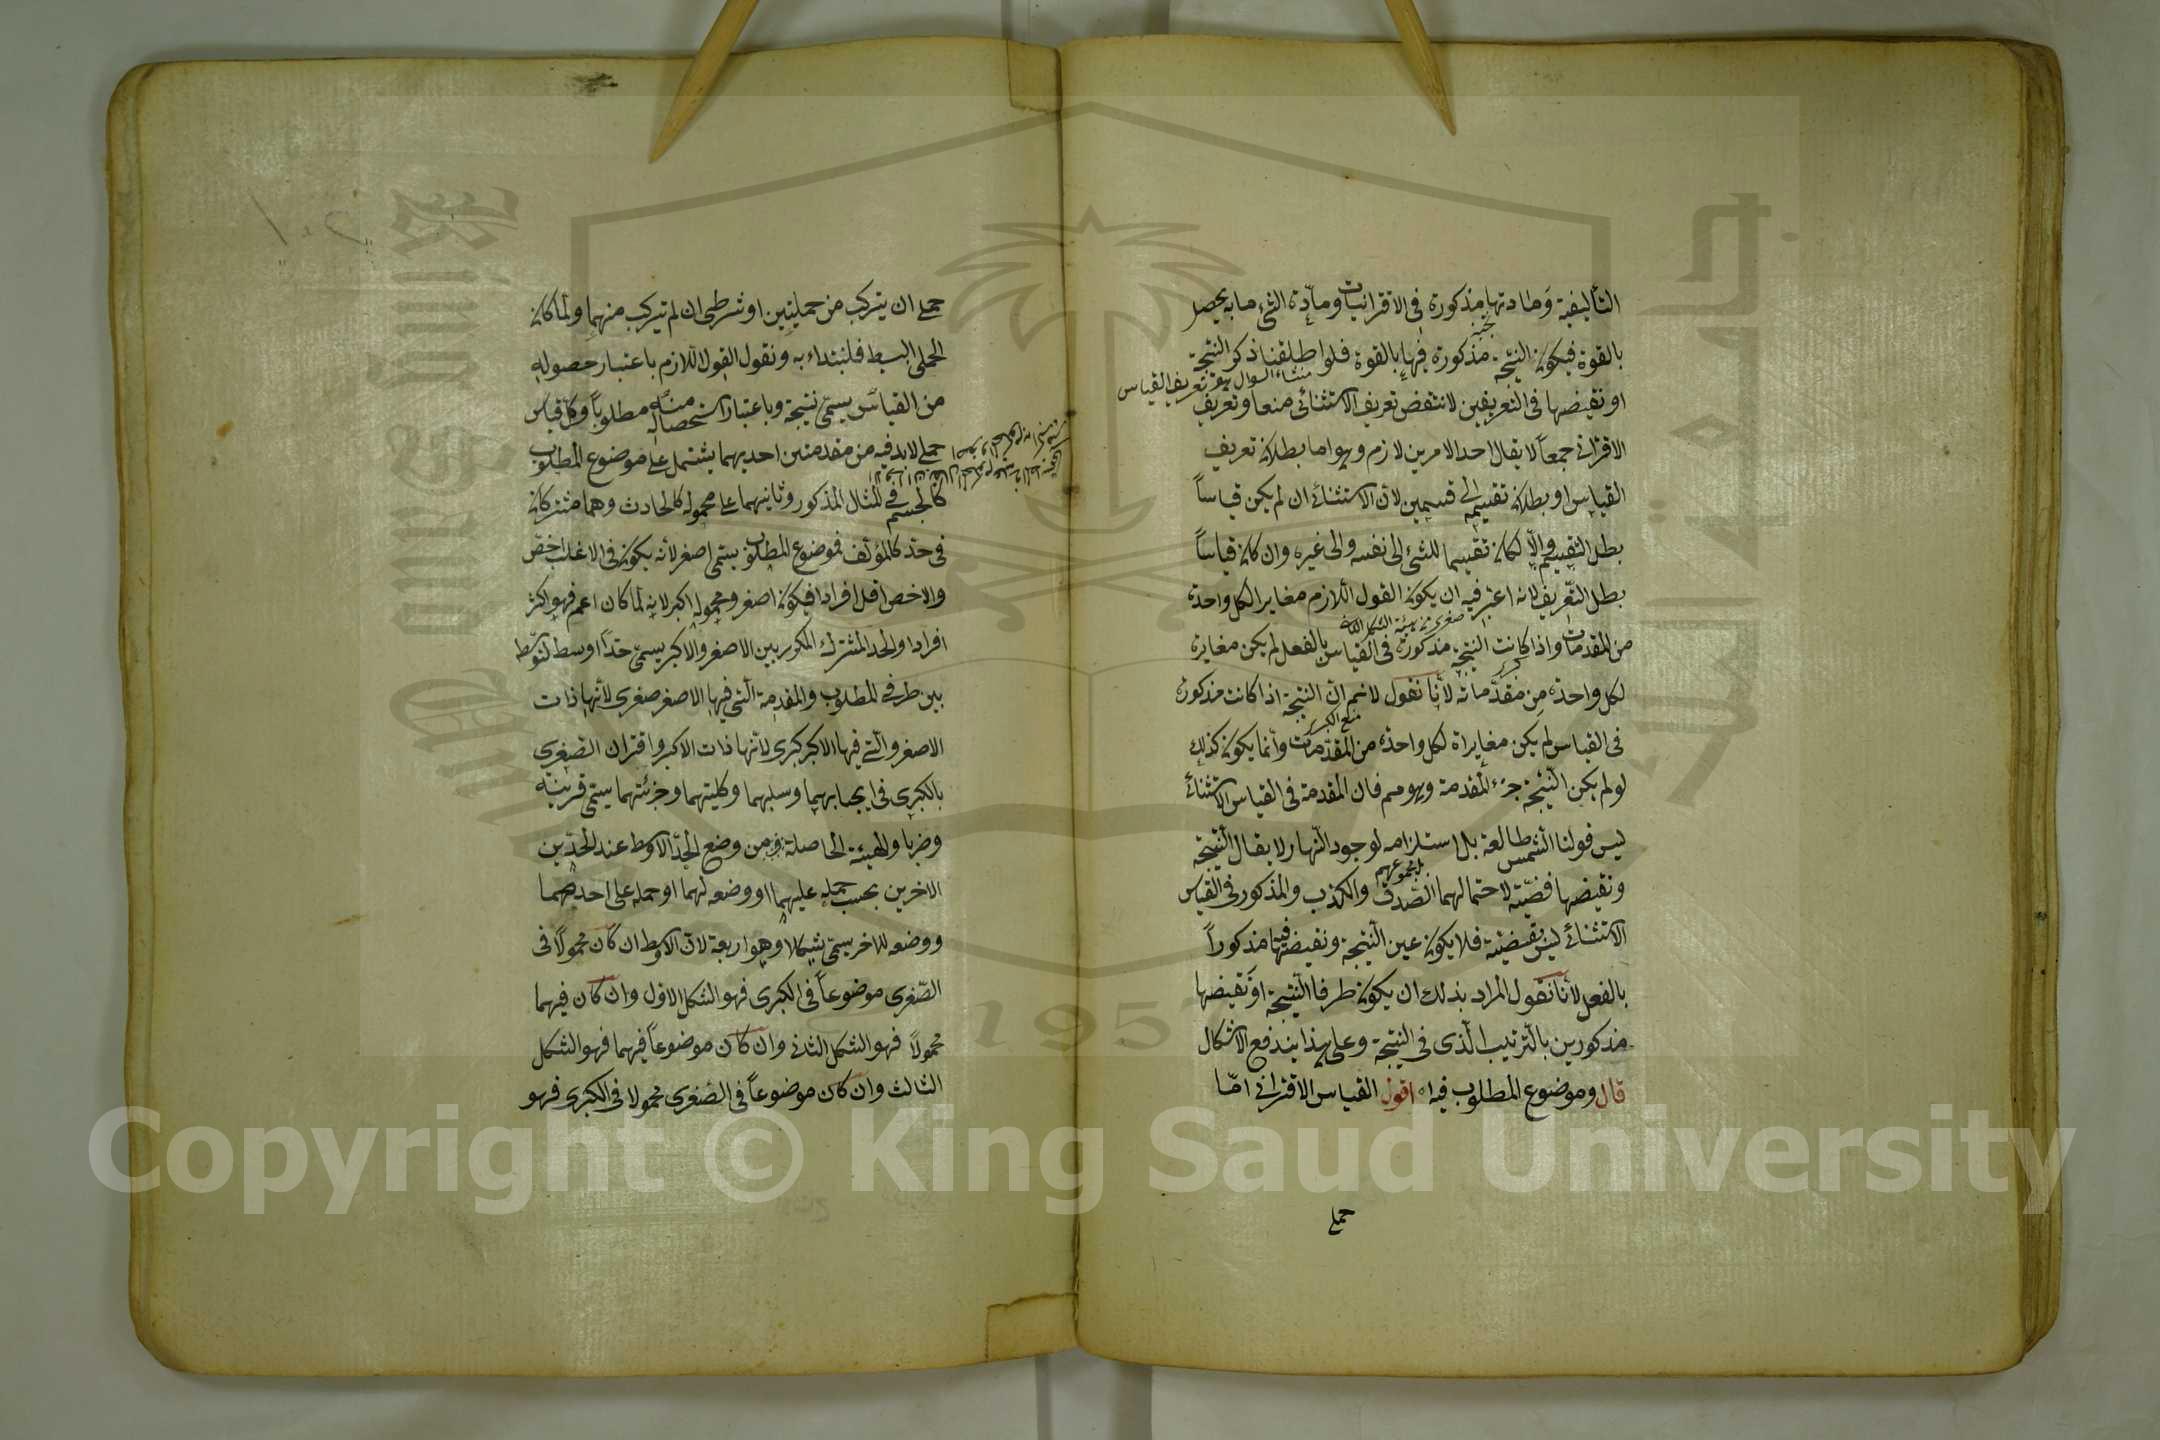 التأليفية ومادتها مذكورة في الاقترانيات ومادة الشئ ما به يحصل
بالقوة فيكون النتيجة مذكورة فيها بالقوة فلو اطلقنا ذكر النتيجة
منشاء السوال تعريف القياس
او نقيضها في التعريفين لانتقض تعريف الاستثنائي منعا وتعريف
الاقتراني جمعاً لا يقال احد الامرين لازم وهو اما بطلان تعريف
القياس او بطلان تقسيمه الى قسمين لان الاستثنائي ان لم يكن قياساً
بطل التقسيم والّا لكان تقسيما للشئ الى نفسه والى غيره وان كان قياساً
بطل التعريف لانه اعتبر فيه ان يكون القول اللازم مغايرا لكل واحدة
من المقدمات واذا كانت النتيجة مذكورة في القياس بالفعل لم يكن مغايرة
لكل واحدة من مقدماته لأنا نقول لا نسم ان النتيجة اذا كانت مذكورة
منع الكبرى
في القياس لم يكن مغايراة لكل واحدة من المقدمات وانما يكون كذلك
لو لم يكن النتيجة جزء المقدمة وهو مم فان المقدمة في القياس الاستثنائي
ليس قولنا الشمس طالعة بل استلزامه لوجود النهار لا يقال النتيجة
ونقيضها قضيّة لاحتمالهما الصدق والكذب والمذكور في القياس
الاستثنائي ليس بقضيّة فلا يكون عين النتيجة ونقيضها فيه مذكوراً
بالفعل لأنا نقول المراد بذلك ان يكون طرفا النتيجة او نقيضها
مذكورين بالترتيب الّذى في النتيجة وعلى هذا يندفع الاشكال
قال وموضوع المطلوب فيه اقول القياس الاقتراني امّا
حملي
حملي ان يتركب من حمليتين او شرطي ان لم يتركب منهما ولما كان
الحملي البسيط فلنبتداء به ونقول القول اللازم باعتبار حصوله
من القياس يسمى نتيجة وباعتبار استحصاله منه مطلوباً وكل قياس
حملي لابد فيه من مقدمتين احديهما يشتمل على موضوع المطلوب
كالجسم في المثال المذكور وثانيهما على محموله كالحادث وهما مشتركان
في حد كالمؤلف فموضوع المطلوب يسمى اصغر لأنه يكون في الاغلب اخص
والاخص اقل افرادا فيكون اصغر ومحموله اكبر لانه لما كان اعم فهو اكثر
افرادا والحد المشترك المكرر بين الاصغر والاكبر يسمى حدّا اوسط لتوسّطه
بين طرفي المطلوب والمقدمة التي فيها الاصغر صغرى لأنها ذات
الاصغر والتي فيها الاكبر كبرى لأنها ذات الاكبر واقتران الصغرى
بالكبرى في ايجابهما وسلبهما وكليتهما وجزئيتهما يسمى قرينة
وضربا والهيئة الحاصلة من وضع الحدّ الاوسط عند الحدّين
الاخرين بحسب حمله عليهما او وضعه لهما او حمله على احدهما
ووضعه للاخر يسمّى شكلا وهو اربعة لان الاوسط ان كان محمولًا في
الصغرى موضوعاً في الكبرى فهو الشكل الاول وان كان فيهما
محمولًا فهو الشكل الثاني وان كان موضوعاً فيهما فهو الشكل
الثالث وان كان موضوعاً في الصغرى محمولا في الكبرى فهو
Copyright © King Saud University
1957